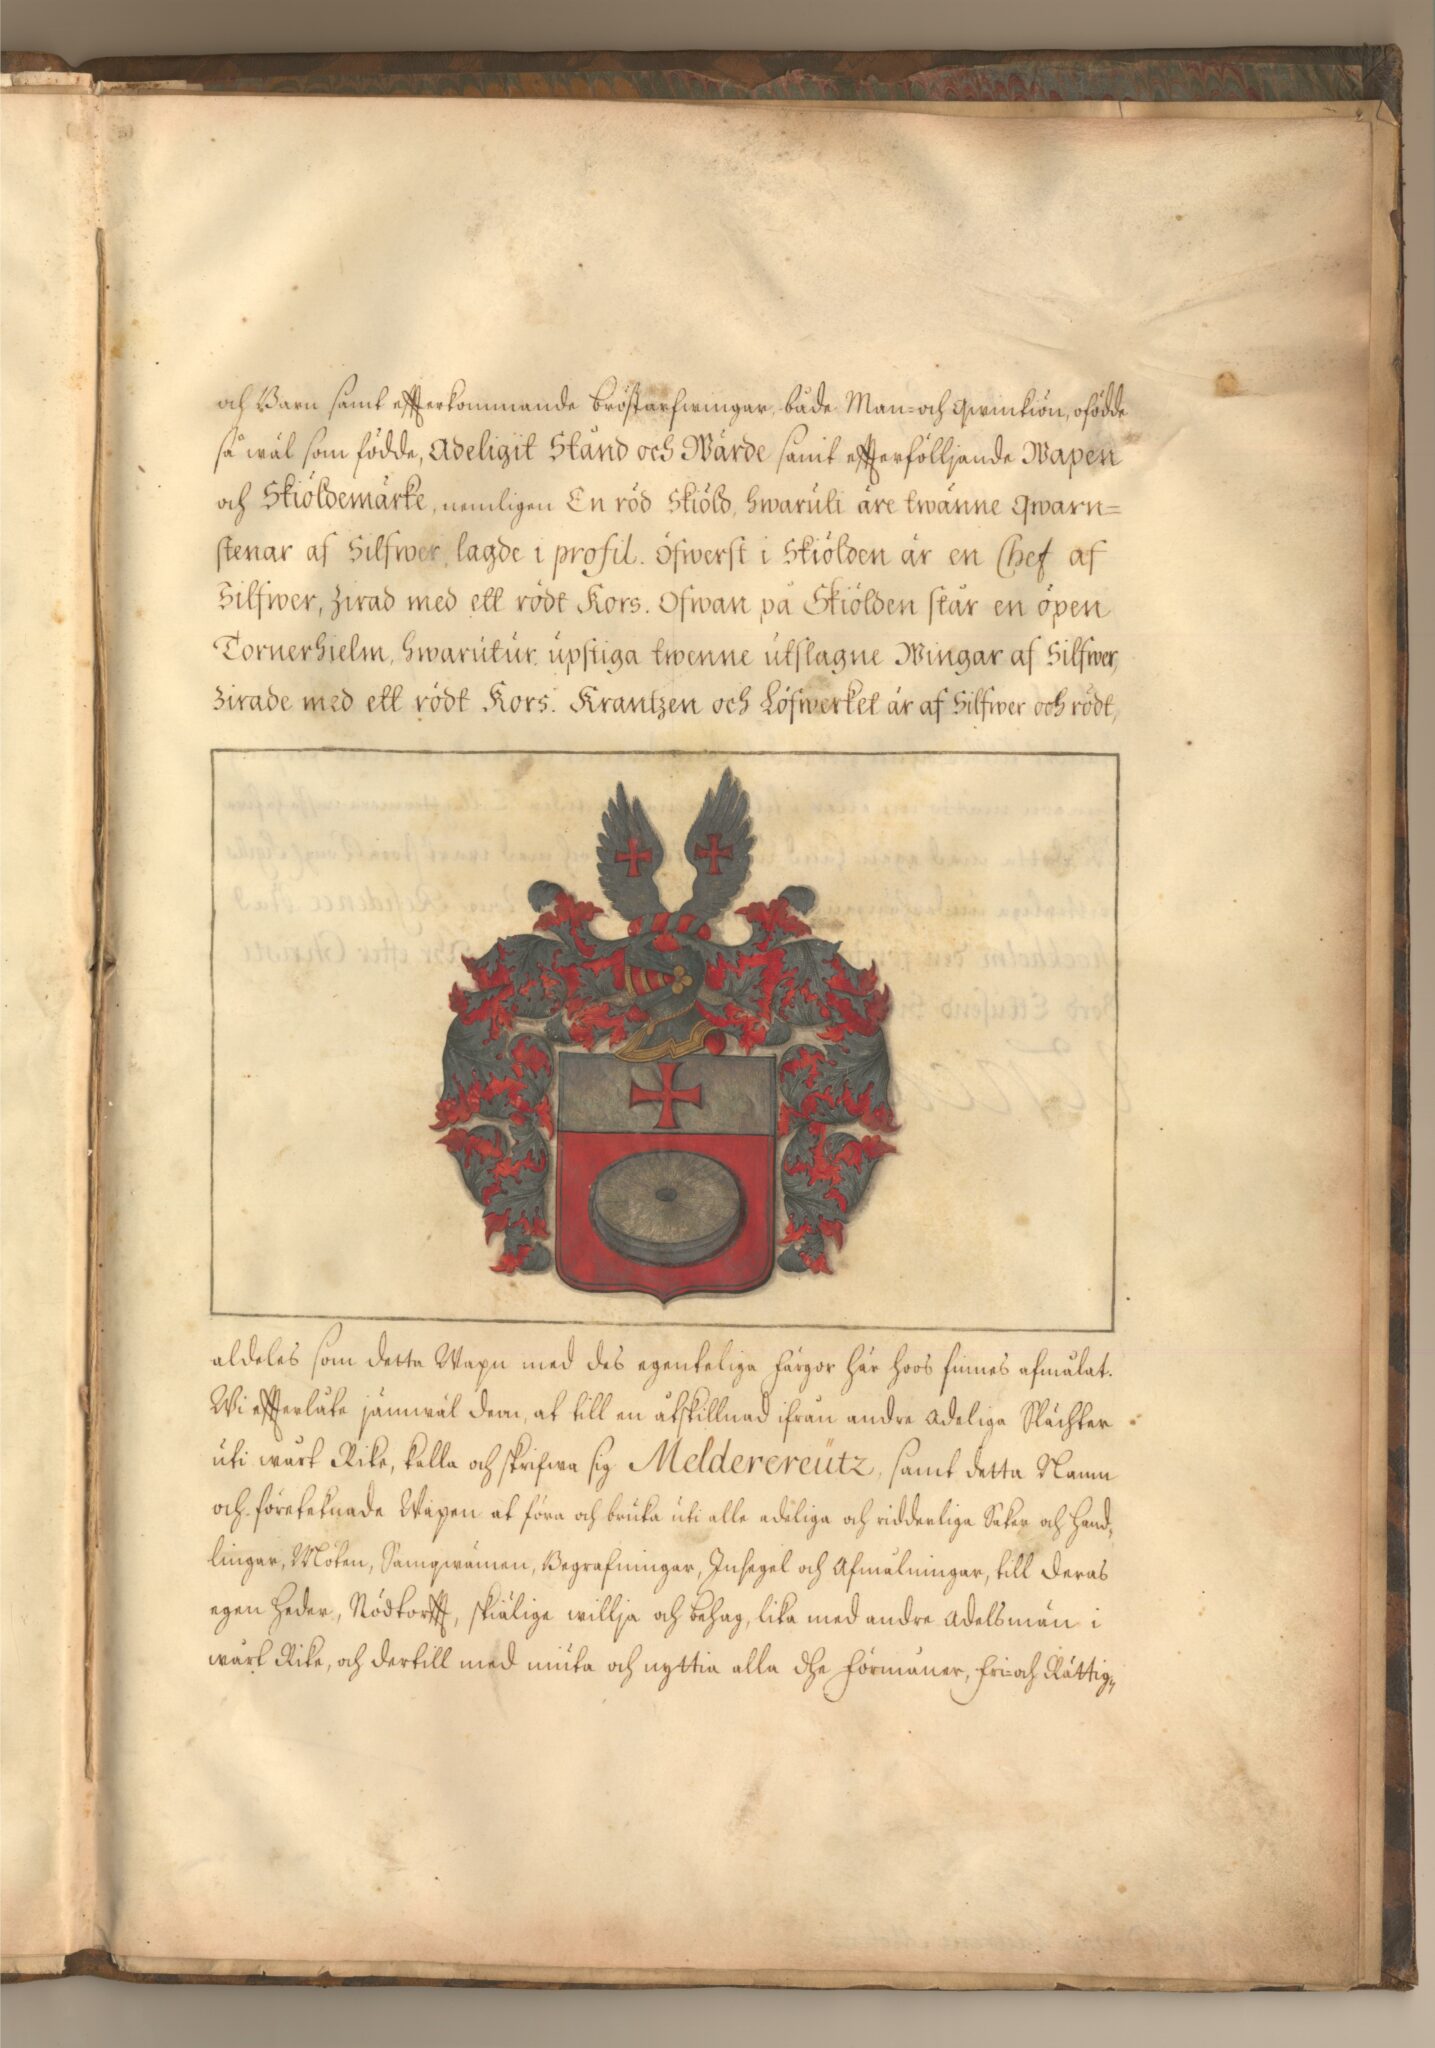 och Barn samt effterkommande bröstarfwingar, både Man= och Qwinkiön, ofödde
så wäl som födde, Adeligit Stånd och Wärde samt effterfölljande Wapen
och Skiöldemärke, nemligen En röd Skiöld, hwarüti äre twänne Qwarn=
stenar af Silfwer, lagde i profil. Öfwerst i Skiölden är en Chef af
Silfwer, zirad med ett rödt Kors. Ofwan på Skiölden står en öpen
Tornerhielm, hwarütur upstiga twenne utslagne Wingar af Silfwer,
zirade med ett rödt Kors. Krantzen och Löfwerket är af Silfwer och rödt,
aldeles som detta Wapn med des egenteliga färgor här hoos finnes afmålat.
Wi effterlåte jämwäl dem, at till en åtskillnad ifrån andre Adeliga Slächter
uti wårt Rike, kalla och skrifwa sig Meldercreütz, samt detta Namn
och företeknade Wapen at föra och bruka uti alle adeliga och ridderliga Saker och Hand,
lingar, Möten, Samqwämen, Begrafningar, Insegel och Afmålningar, till deras
egen Heder, Nödtorfft, skiälige willja och behag, lika med andre Adelsmän i
wårt Rike, och dertill med niuta och nyttia alla dhe Förmåner, Fri= och Rättig,